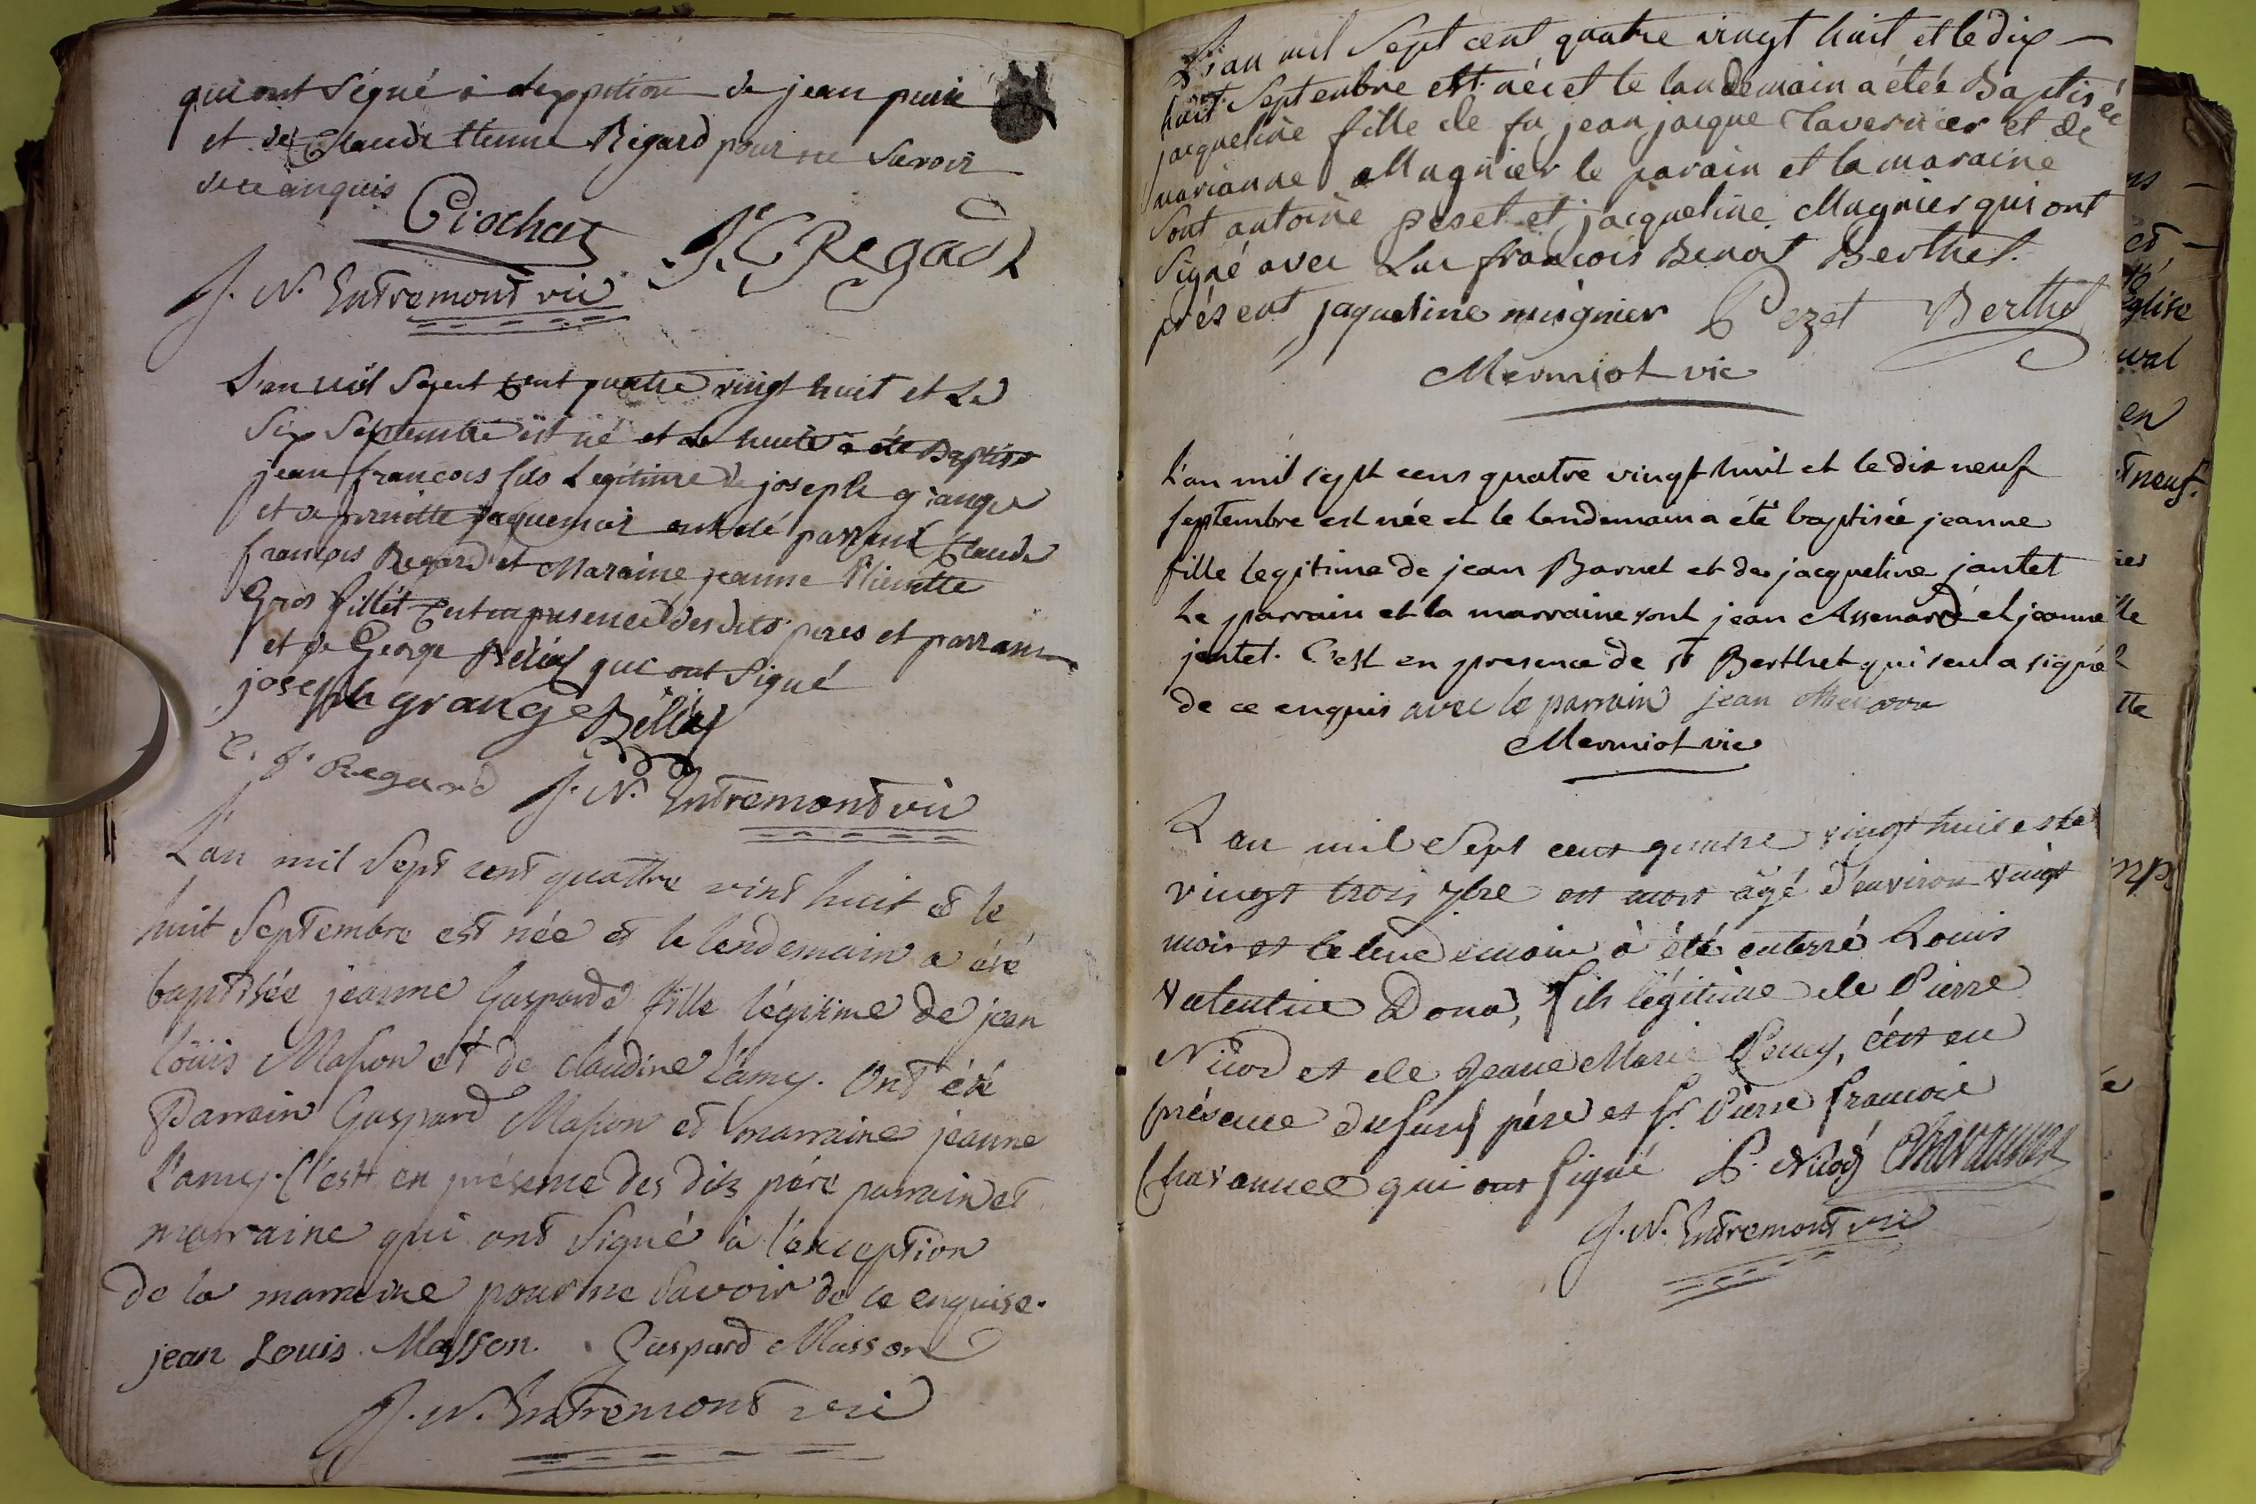 qui ont Signé à de jean
et de Claude Etienne Régard pour ne Savoir
de ce enquis
Criochat J. C Regad
J. N. Entremont vic
L'an mil Sept Cent quatre vingt huit et Le
Six Septembre est né et Le huite a été Baptisé
jean françois fils Legitime de joseph grange
et de pierrette jaquemet ont été parrain Claude
françois Regard et Maraine jeanne Pierrette
Gros fillet C'est en presence des dits peres et parrains
et de George Béliay qui ont Signé
joseph grange Béliay
C. f. Regard J. N. Entremont vic
L'an mil Sept cent quattre vint huit et le
huit Septembre est née et le lendemain a été
baptisée jeanne Gasparde fille légitime de jean
louis Masson et de claudine l'amy. Ont été
Parrain Gaspard Masson et marraine jeanne
l'amy. C'est en présence des dits pére parrain et
marraine qui ont Signé à l'exception
de la marraine pour ne Savoir de ce enquise.
jean Louis Masson. Gaspard Masson
J. N. Entremont vic
L'an mil Sept cent quatre vingt huit et le dix
huit Septembre est née et le landemain a étée Baptisée
jacqueline fille de fu jean jacque Tavernier et de
marianne Magnier le parain et la maraine
Sont antoine peset et jacqueline Magnier qui ont
Signé avec Luc françois Benoit Berthet.
présent jaqueline mignier Pezet Berthet
Mermiot vic
L'an mil sept cens quatre vingt huit et le dix neuf
septembre est née et le lendemain a été baptisée jeanne
fille legitime de jean Barnet et de jacqueline jantet
Le parrain et la marraine sont jean Assenard et jeanne
jantet. C'est en presence de sr Berthet qui seul a signé
de ce enquis avec le parrain jean
Mermiot vic
L'an mil Sept cent quatre vingt huit et le
vingt trois 7bre est mort âgé d'environ vingt
mois et le lendemain à été enterré Louis
Valentin Dona, fils légitime de Pierre
Nicod et de Jeane Marie Pency, c'est en
présence du susd pére et Sr. Pierre francois
Chavannes qui ont signé P. Nicod Chavannes
J. N. Entremont vic